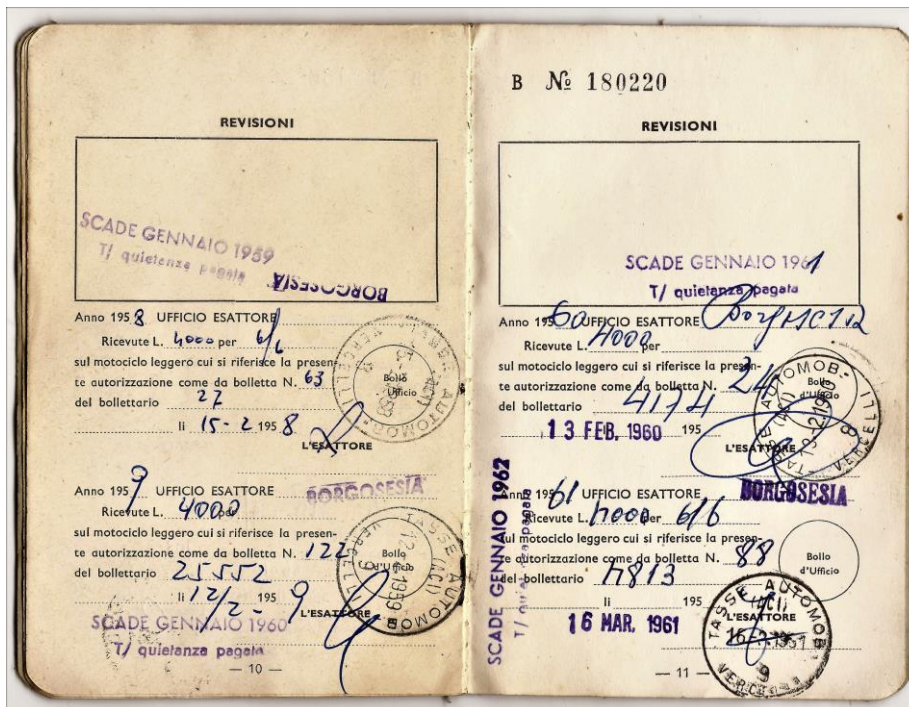 REVISIONI
SCADE GENNAIO 1959
T/ quietanza pagata
BORGOSESIA
Anno 1958 UFFICIO ESATTORE
Ricevute L. 4000 per 6/6
sul motociclo leggero cui si riferisce la presen-
te autorizzazione come da bolletta N. 63
del bollettario 27
li 15-2 1958
L'ESATTORE
Bollo
d'Ufficio
Anno 1959 UFFICIO ESATTORE BORGOSESIA
Ricevute L. 4000 per
sul motociclo leggero cui si riferisce la presen-
te autorizzazione come da bolletta N. 122
del bollettario 25552
li 12/2- 1959
L'ESATTORE
Bollo
d'Ufficio
TASSE AUTOMOB
(ACI)
SCADE GENNAIO 1960
T/ quietanza pagata
— 10 —
B № 180220
REVISIONI
SCADE GENNAIO 1961
T/ quietanza pagata
Anno 1960 UFFICIO ESATTORE Borgosesia
Ricevute L. 4000 per
sul motociclo leggero cui si riferisce la presen-
te autorizzazione come da bolletta N. 24
del bollettario 4174
13 FEB. 1960 195
L'ESATTORE
Bollo
d'Ufficio
TASSE AUTOMOB.
(ACI)
VERCELLI
SCADE GENNAIO 1962
T/ quietanza pagata
BORGOSESIA
Anno 1961 UFFICIO ESATTORE
Ricevute L. 4000 per 6/6
sul motociclo leggero cui si riferisce la presen-
te autorizzazione come da bolletta N. 88
del bollettario 4813
li 195
16 MAR. 1961
L'ESATTORE
Bollo
d'Ufficio
TASSE AUTOMOB.
(ACI)
9
— 11 —